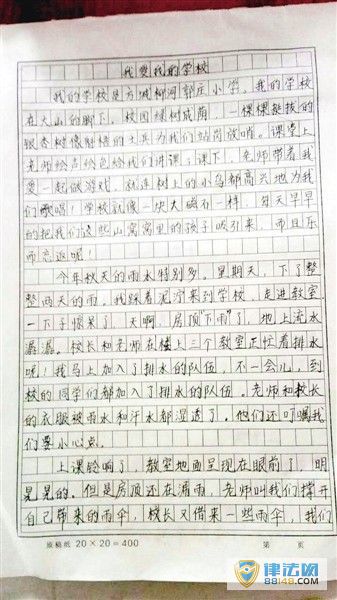 我爱我的学校
我的学校是方城柳河郭庄小学。我的学校
在大山的脚下，校园绿树成荫，一棵棵挺拔的
银杏树像解放的士兵为我们站岗放哨。课堂上
老师绘声绘色给我们讲课；课下，老师带着我
爱一起做游戏，就连树上的小鸟都高兴地为我
们歌唱！学校就像一块大磁石一样，每天早早
的把我们这些山窝窝里的孩子吸引来，而且乐
而忘返呢！
今年秋天的雨水特别多。星期天，下了整
整两天的雨。我踩着泥泞来到学校，走进教室
一下子惊呆了，天啊，房顶"下雨"了，地上流水
潺潺。校长和老师在楼上三个教室正忙着排水
呢！我马上加入了排水的队伍，不一会儿，到
校的同学们都加入了排水的队伍。老师和校长
的衣服被雨水和汗水都湿透了。他们还叮嘱我
们要小心点。
上课铃响了，教室地面呈现在眼前了，明
晃晃的。但是房顶还在滴雨，老师叫我们撑开
自己带来的雨伞，校长又借来一些雨伞，我们
原稿纸 20×20=400 第 页
律法网
88148.com